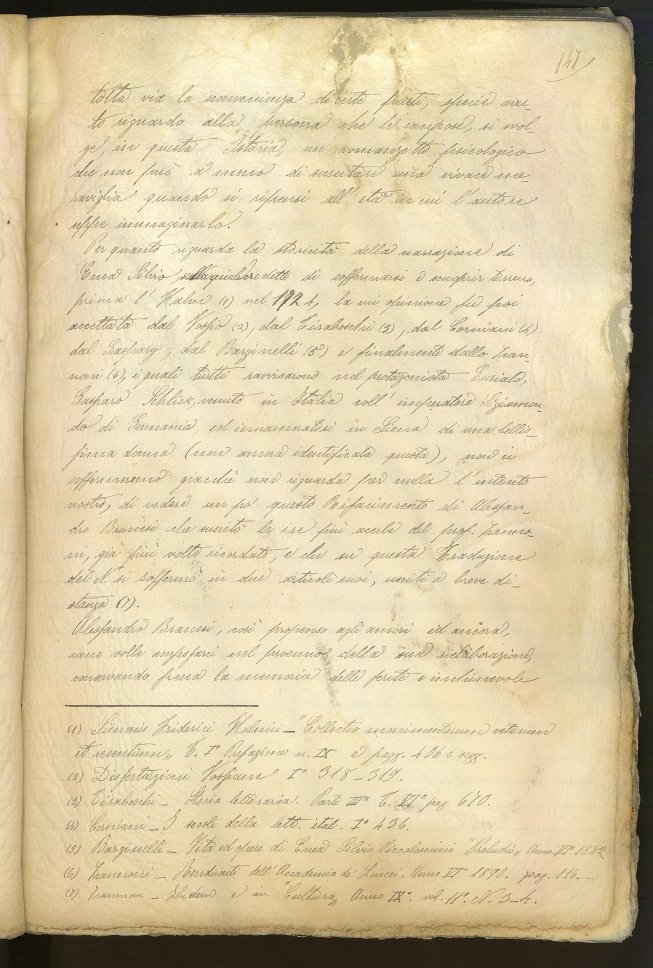 147
tolta via la sconvenienza di certe parti, specie avu-
to riguardo alla persona che le compose, si svol-
ge, in questa "Istoria" un romanzetto psicologico
che non può a meno di suscitare una vivace me-
raviglia quando si ripensi all'età in cui l'autore
seppe immaginarlo.
Per quanto riguarda la storicità della narrazione di
Enea Silvio sulla quale credette di soffermarsi e scuoprir terreno,
prima l'Halm (1) nel 1724, la cui opinione fu poi
accettata dal Vossio (2), dal Tiraboschi (3), dal Corniani (4)
dal Gaspary, dal Barzinelli (5) e finalmente dallo Zan-
noni (6), i quali tutti ravvisarono nel protagonista Eurialo,
Gasparo Schlick, venuto in Italia coll'imperatore Sigismon-
do di Germania, ed innamoratosi in Siena di una bellis-
sima donna (non ancora identificata questa), non ci
soffermeremo giacchè non riguarda per nulla l'intento
nostro, di vedere un po' questo Rifacimento di Alessan-
dro Braccesi che suscitò le ire più acerbe del prof. Zanno-
ni, già più volte ricordato, e che su questa Traduzione
del N. si soffermò in due articoli suoi, usciti a breve di-
stanza (7).
Alessandro Braccesi, così propenso agli amori ed ancora,
come volle confessarci nel proemio della sua rielaborazione,
conservando fresca la memoria delle ferite e inchinevole
(1) Simonis Friderici Halmii – "Collectio monumentorum veterum
et recentium, T. I° Prefazione n. IX e pagg. 406 e segg.
(2) Dissertazioni Vossiane I° 318-319.
(3) Tiraboschi – Storia letteraria. Parte III° T. VI° pag. 670.
(4) Corniani – I secoli della lett. ital. I° 436.
(5) Barzinelli – Vita ed opere di Enea Silvio Piccolomini "Preludio" Anno VI° 1882.
(6) Zannoni – Rendiconti dell'Accademia de' Lincei. Anno VI° 1890. pag. 116.
(7) Zannoni – Ibidem e in "Cultura" Anno IX°. vol. 11°. N. 3-4.